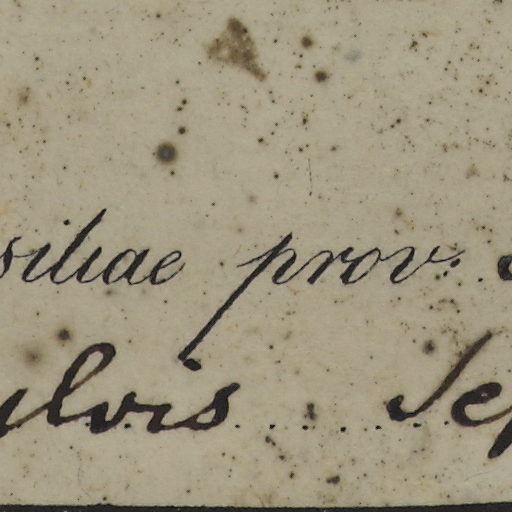 siliae prov.
ulvis Sep